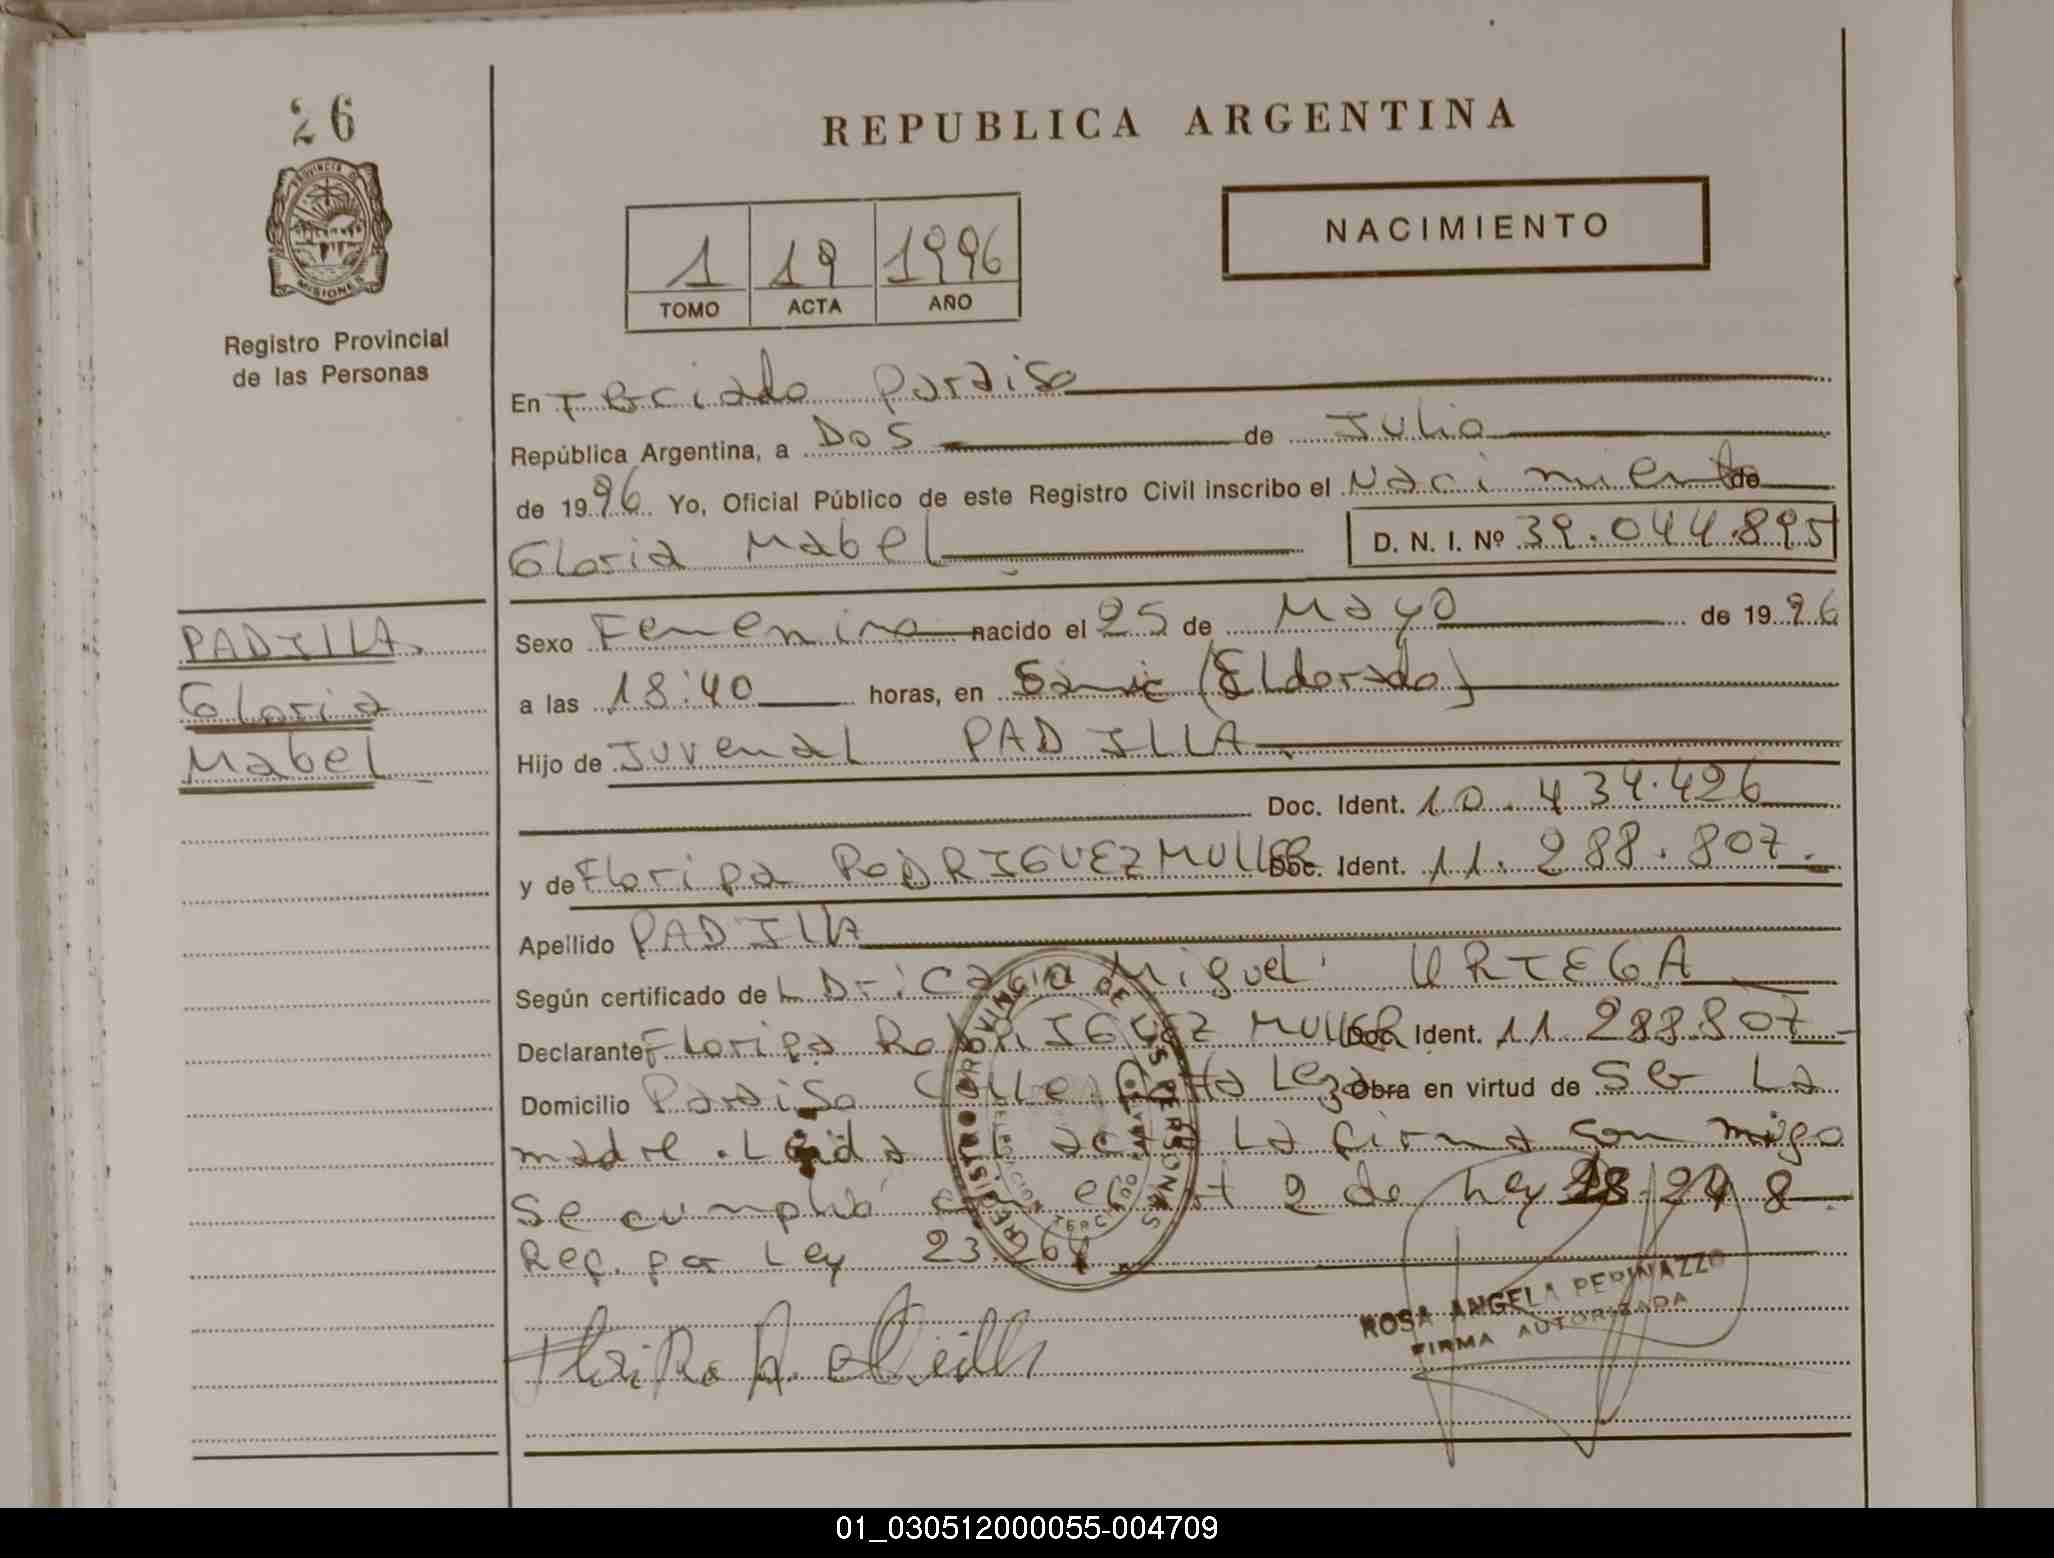 26
PROVINCIA DE
MISIONES
Registro Provincial
de las Personas
REPUBLICA ARGENTINA
1 19 1996
TOMO ACTA AÑO
NACIMIENTO
En Terciado Paraiso
República Argentina, a Dos de Julio
de 1996 Yo, Oficial Público de este Registro Civil inscribo el Nacimiento de
Gloria Mabel D. N. I. Nº 39.044.895
PADILLA
Gloria
Mabel
Sexo Femenino nacido el 25 de Mayo de 1996
a las 18:40 horas, en Samic (Eldorado)
Hijo de Juvenal PADILLA
Doc. Ident. 10.434.426
y de Floripa RODRIGUEZ MULLER Doc. Ident. 11.288.807.
Apellido PADILLA
Según certificado de Miguel URTEGA
Declarante Floripa RODRIGUEZ MULLER Doc. Ident. 11 288.807
Domicilio Paraiso Calle Obra en virtud de Ser La
madre. Leida acta La firma con migo
Se cumplió 2 de Ley 24 8
Ref. por Ley 23.264
REGISTRO PROVINCIAL DE LAS PERSONAS
ROSA ANGELA PERINAZZO
FIRMA AUTORIZADA
01_030512000055-004709